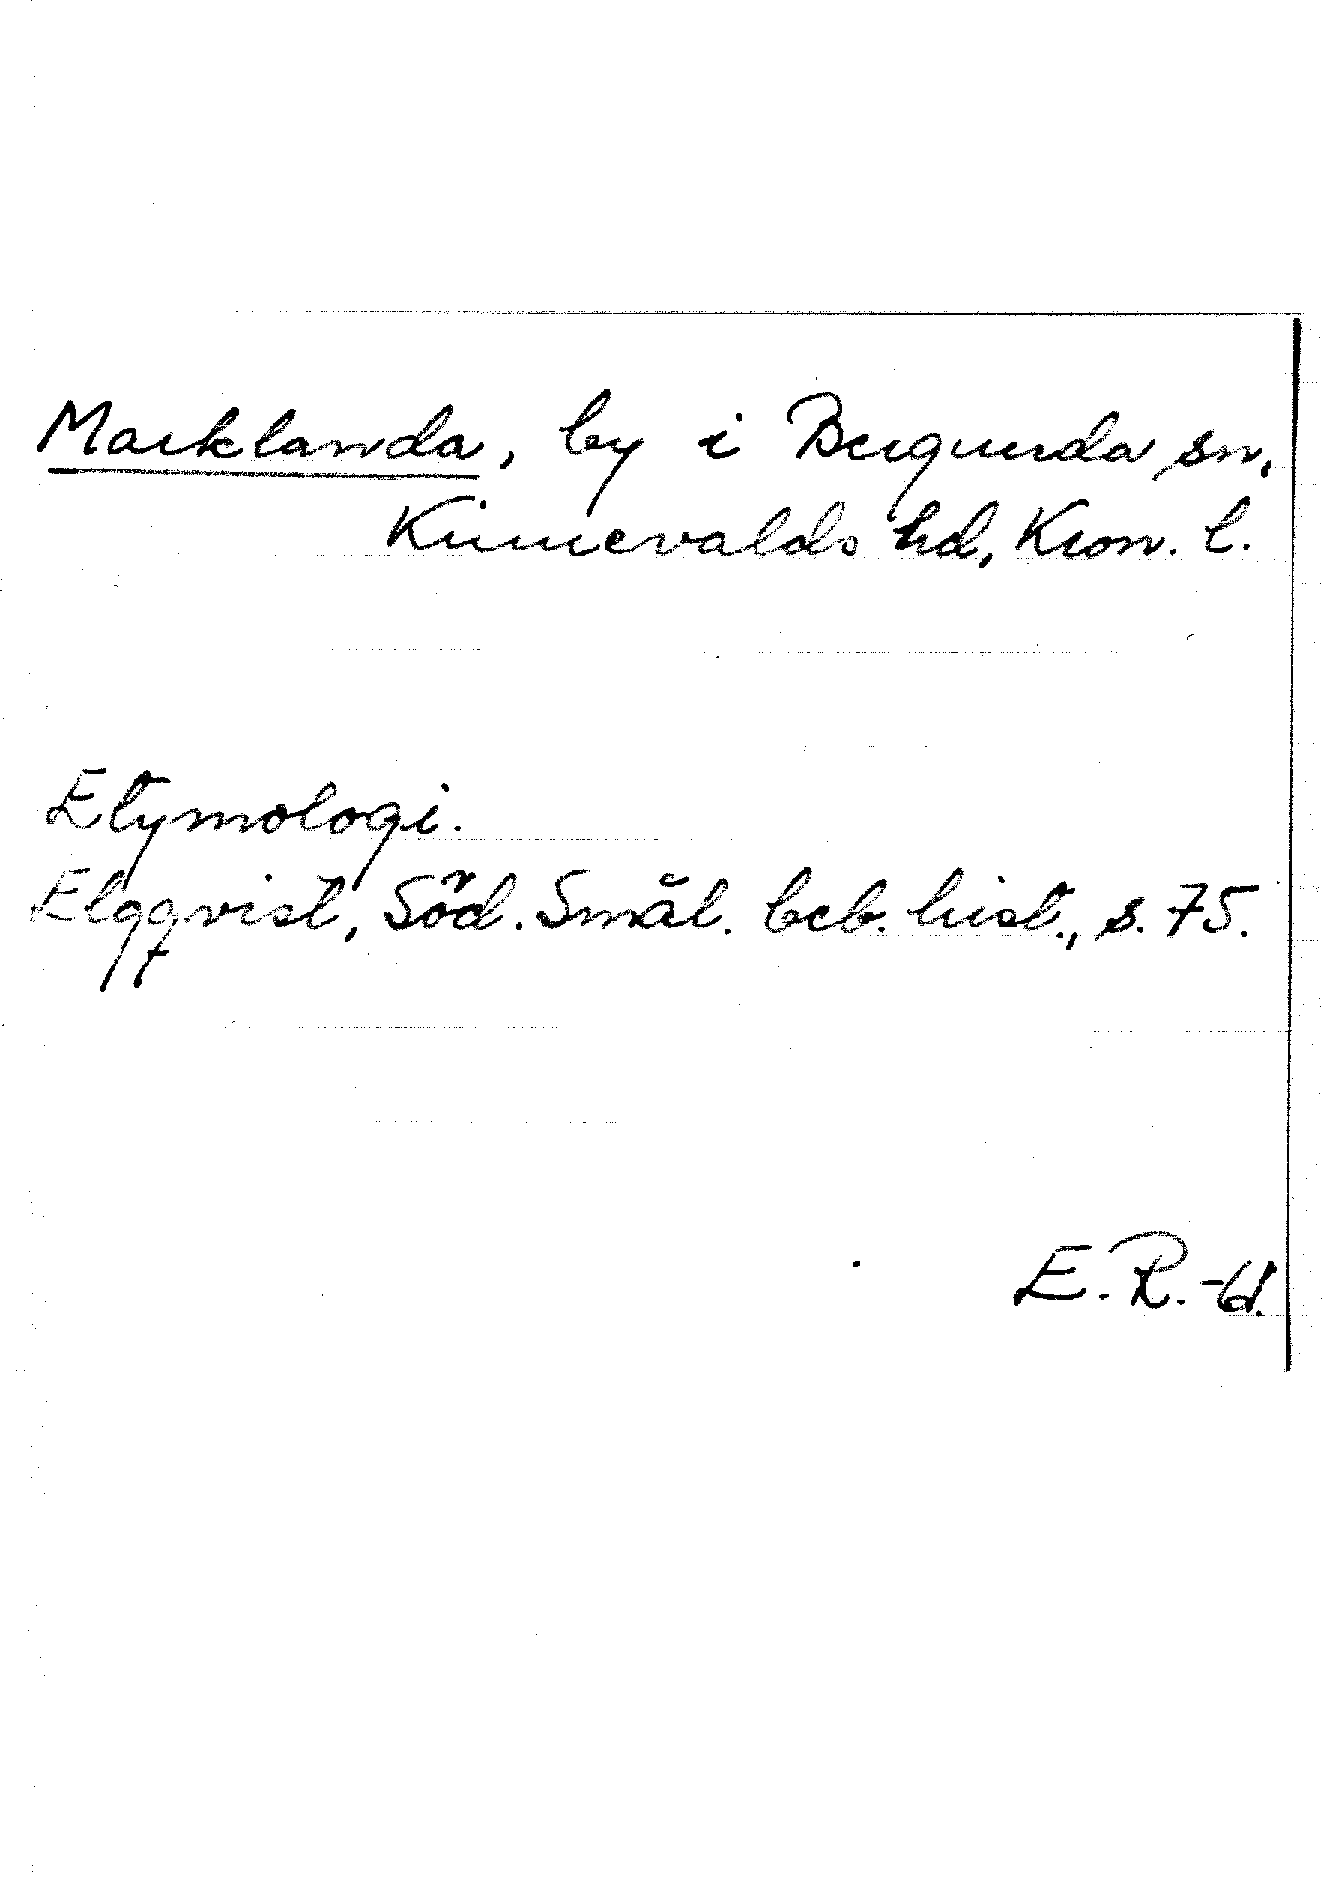 Marklanda, by i Bergunda sn,
Kinnevalds hd, Kron. l.
Etymologi.
Elgqvist, Söd. Smål. beb. hist., s. 75.
E. R.-U.